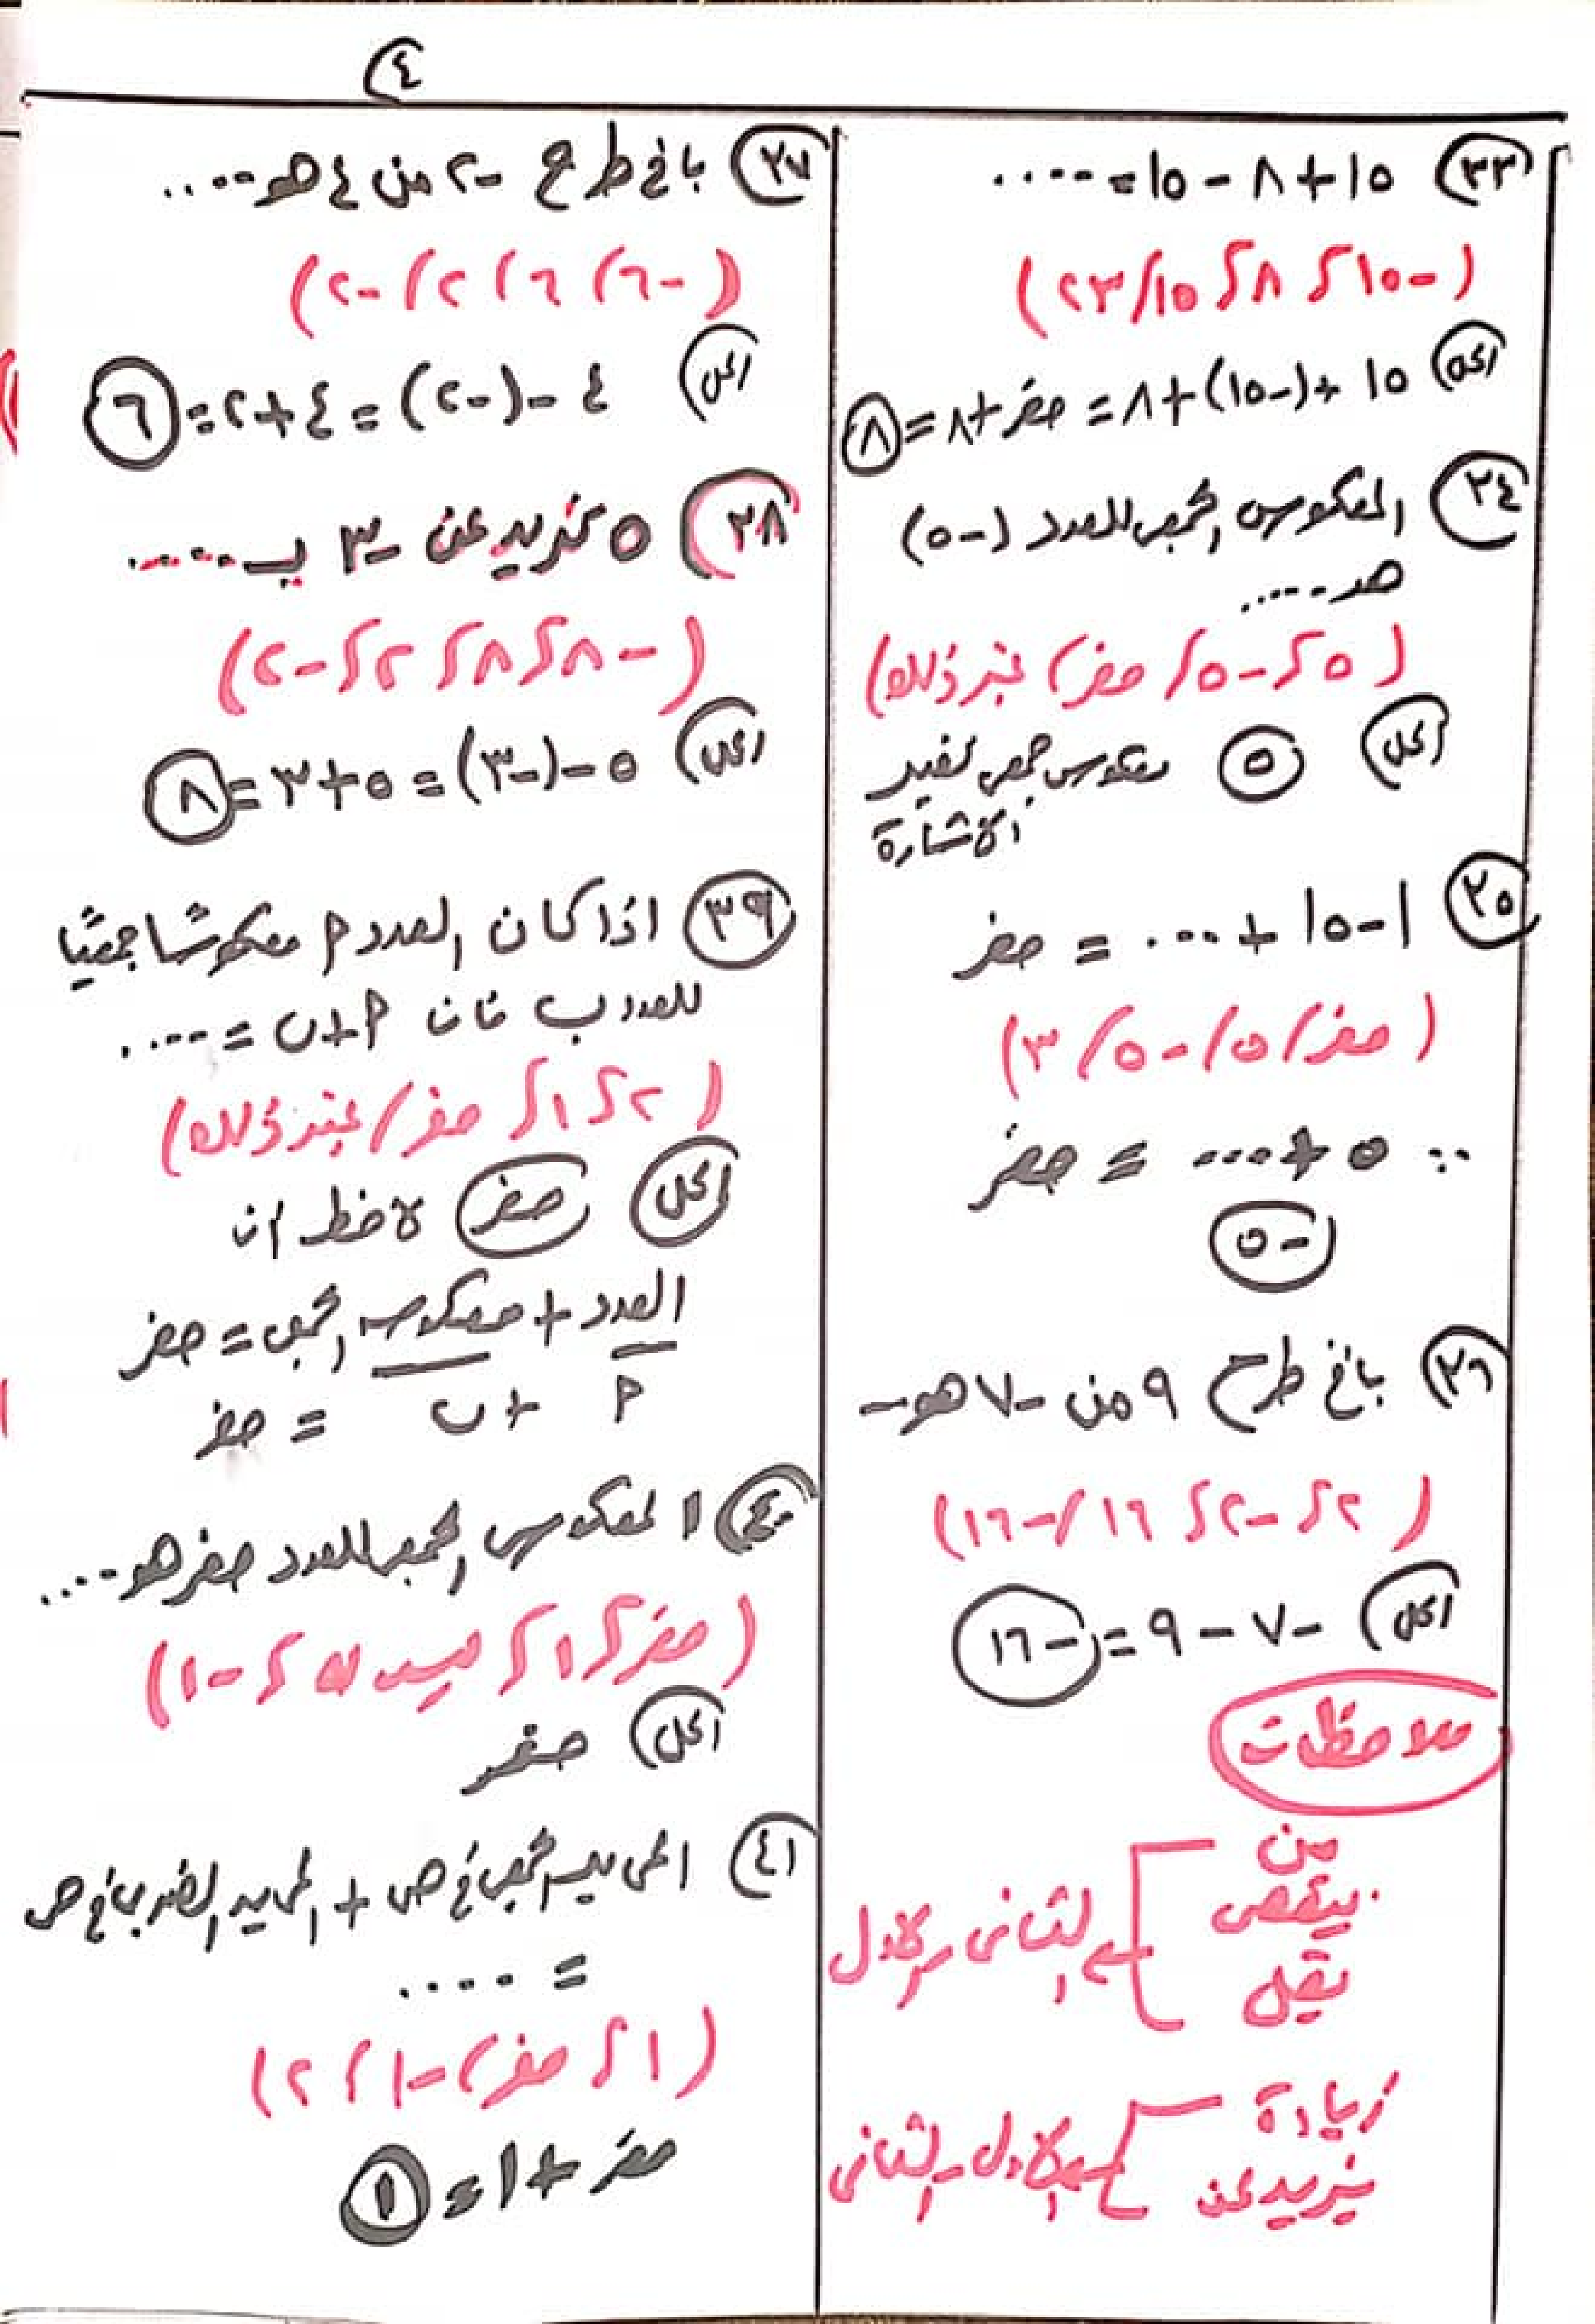 ٤
٣٣ ١٥ + ٨ - ١٥ = ....
( -١٥ ، ٨ ، ١٥ ، ٢٣ )
الحل ١٥ + (-١٥) + ٨ = صفر + ٨ = ٨
٣٤ المعكوس الجمعى للعدد (-٥)
هو .....
( ٥ ، -٥ ، صفر ، غير ذلك )
الحل ٥ معكوس جمعى تغيير
الاشارة
٣٥ |-٥| + ... = صفر
( صفر ، ٥ ، -٥ ، ٣ )
∵ ٥ + ... = صفر
-٥
٣٦ باقى طرح ٩ من -٧ هو -
( ٢ ، -٢ ، ١٦ ، -١٦ )
الحل -٧ - ٩ = -١٦
ملاحظات
من
ينقص
يقل
الثانى - الاول
زيادة
يزيد عن
الاول - الثانى
٣٧ باقى طرح -٢ من ٤ هو ....
( -٦ ، ٦ ، ٢ ، -٢ )
الحل ٤ - (-٢) = ٤ + ٢ = ٦
٣٨ ٥ تزيد عن -٣ بـ .....
( -٨ ، ٨ ، ٢ ، -٢ )
الحل ٥ - (-٣) = ٥ + ٣ = ٨
٣٩ اذا كان العدد م معكوسًا جمعيًا
للعدد ب فان م + ب = ....
( ٢ ، ١ ، صفر ، غير ذلك )
الحل صفر لاحظ ان
العدد + معكوسه الجمعى = صفر
م + ب = صفر
٤٠ المعكوس الجمعى للعدد صفر هو ....
( صفر ، ١ ، ليس له ، -١ )
الحل صفر
٤١ المحايد الجمعى فى ص + المحايد الضربى فى ص
= ....
( ١ ، صفر ، -١ ، ٢ )
صفر + ١ = ١